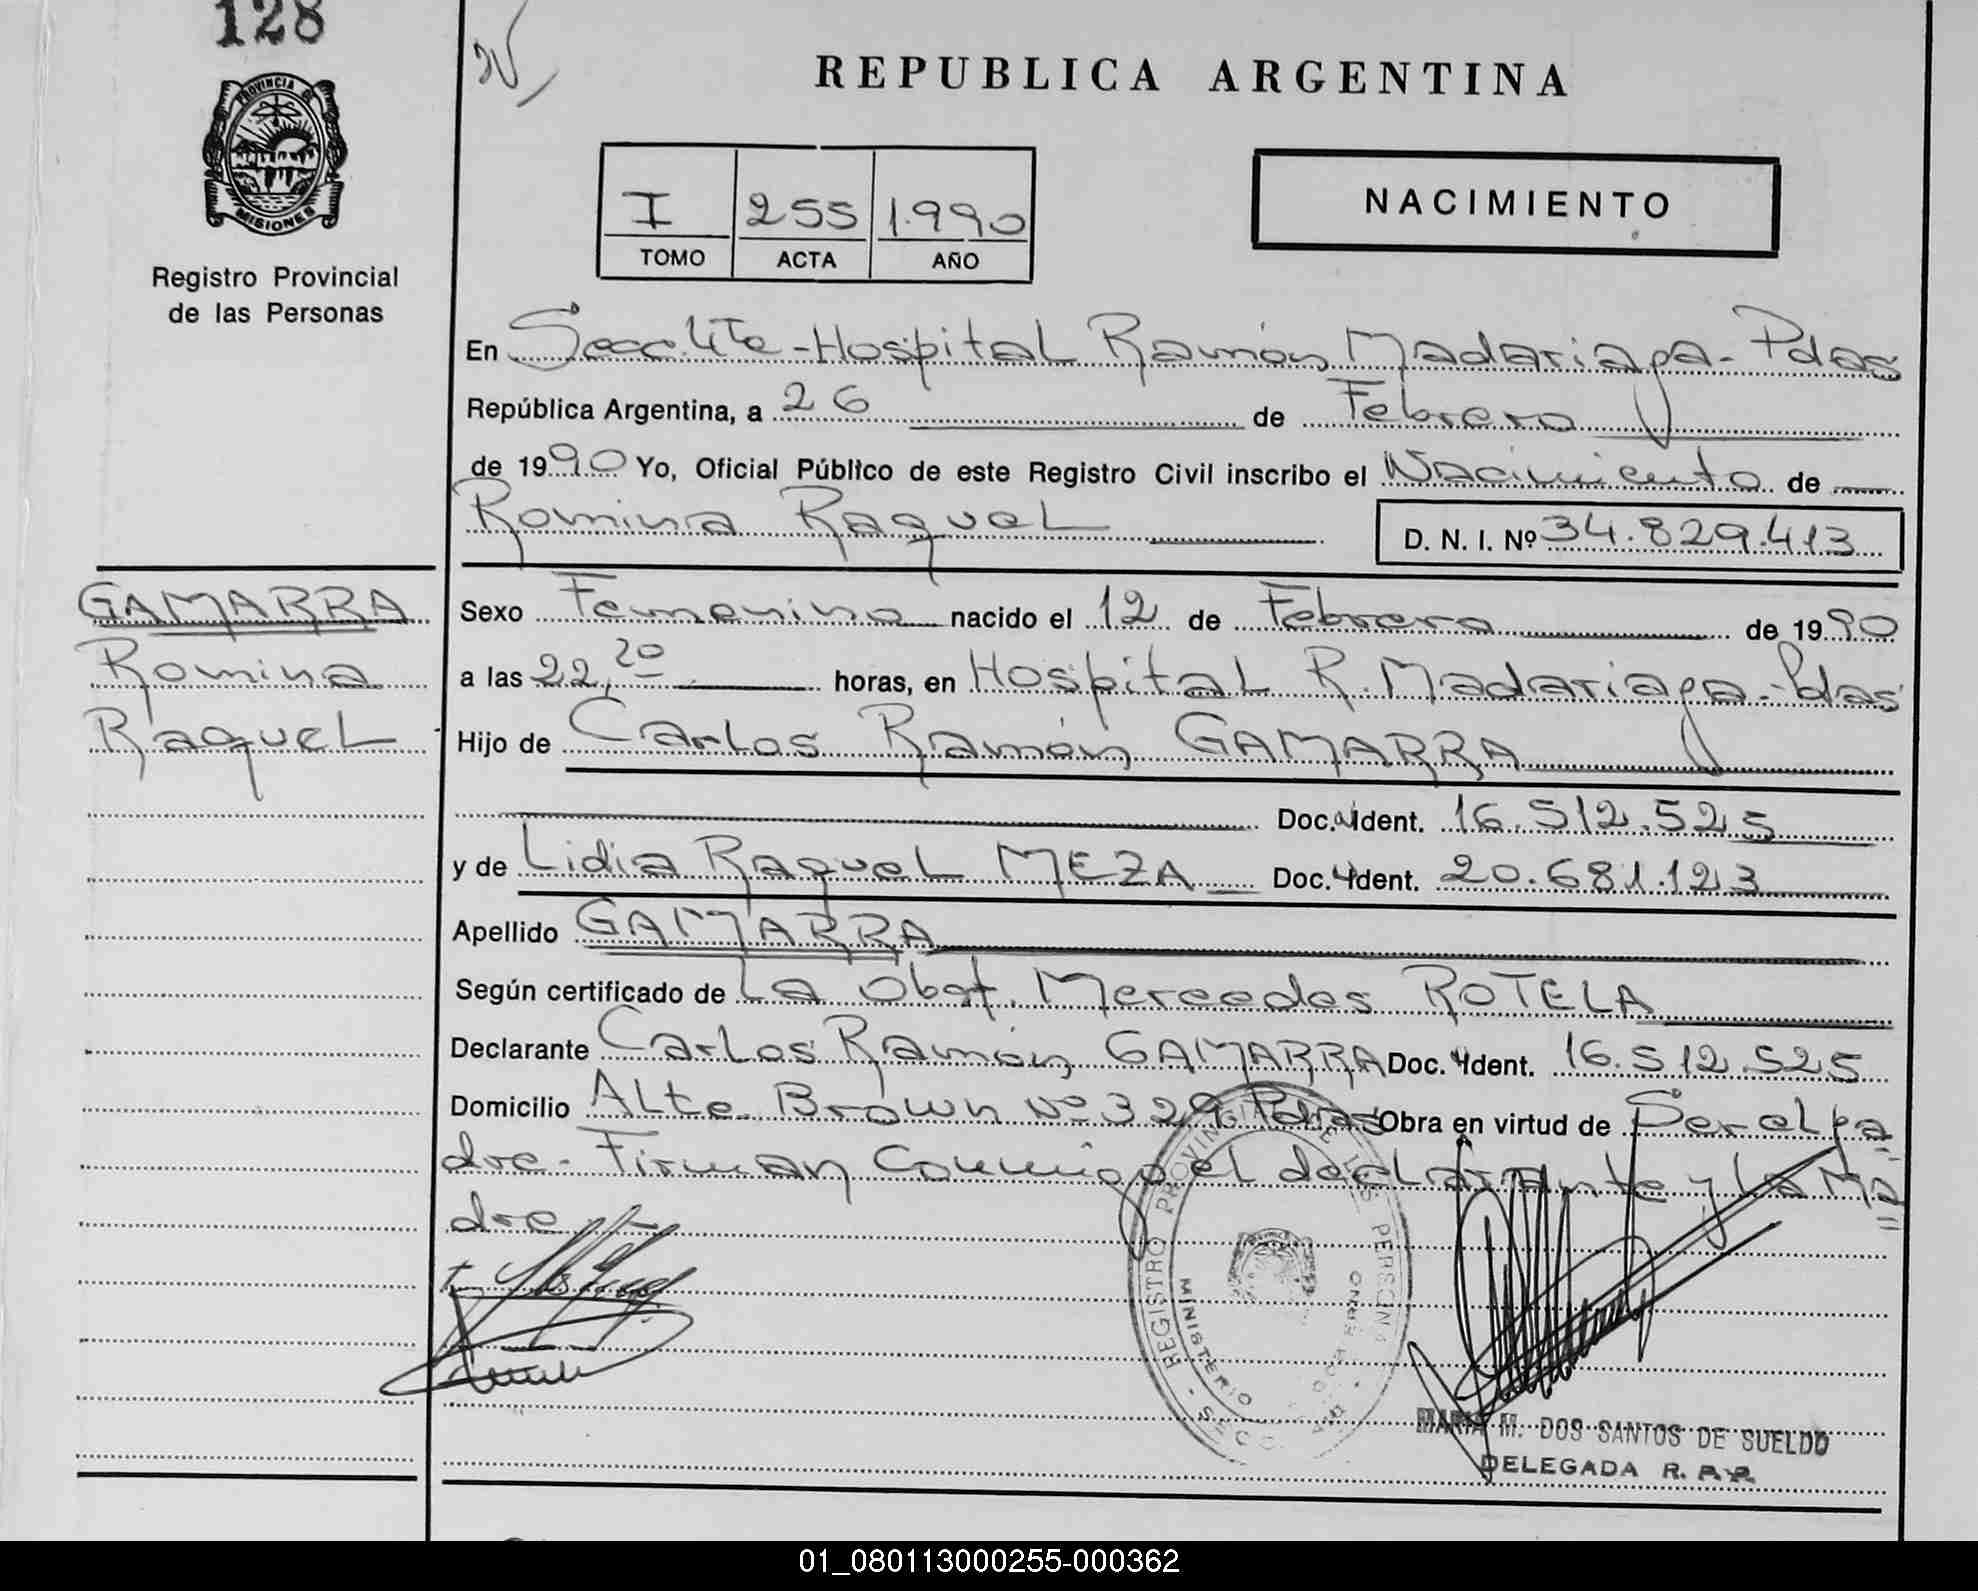 128
REPUBLICA ARGENTINA
PROVINCIA DE
MISIONES
Registro Provincial
de las Personas
I 255 1.990
TOMO ACTA AÑO
NACIMIENTO
En Secc. 4ta - Hospital Ramón Madariaga - Pdas
República Argentina, a 26 de Febrero
de 1990 Yo, Oficial Público de este Registro Civil inscribo el Nacimiento de
Romina Raquel D. N. I. Nº 34.829.413
GAMARRA
Romina
Raquel
Sexo Femenino nacido el 12 de Febrero de 1990
a las 22,20 horas, en Hospital R. Madariaga - Pdas
Hijo de Carlos Ramón GAMARRA
Doc. Ident. 16.512.525
y de Lidia Raquel MEZA Doc. Ident. 20.681.123
Apellido GAMARRA
Según certificado de La Obst. Mercedes ROTELA
Declarante Carlos Ramón GAMARRA Doc. Ident. 16.512.525
Domicilio Alte. Brown Nº 329 Pdas Obra en virtud de Ser el pa
dre - Firman Conmigo el declarante y la Ma
dre
REGISTRO PROVINCIAL DE LAS PERSONAS
MINISTERIO DE GOBIERNO
MARIA M. DOS SANTOS DE SUELDO
DELEGADA R. P. P.
01_080113000255-000362